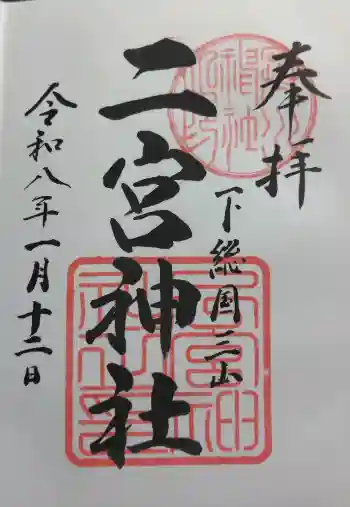 奉拝
下総国三山
二宮神社
令和八年一月十二日